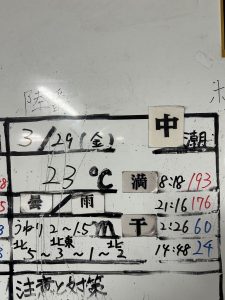 陸
3/29(金) 中潮
23℃ 満 8:18 193
曇/雨 21:16 176
うねり 2~1.5m 干 2:26 60
北 北東 北
.5~3~1~2 14:48 24
注意と対策